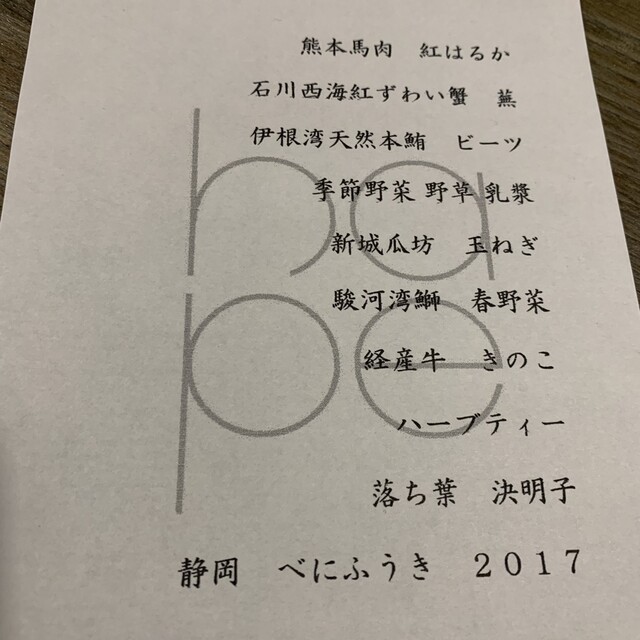 熊本馬肉　紅はるか
石川西海紅ずわい蟹　蕪
伊根湾天然本鮪　ビーツ
季節野菜 野草 乳漿
新城瓜坊　玉ねぎ
駿河湾鰤　春野菜
経産牛　きのこ
ハーブティー
落ち葉　決明子
静岡　べにふうき　２０１７
na
pe